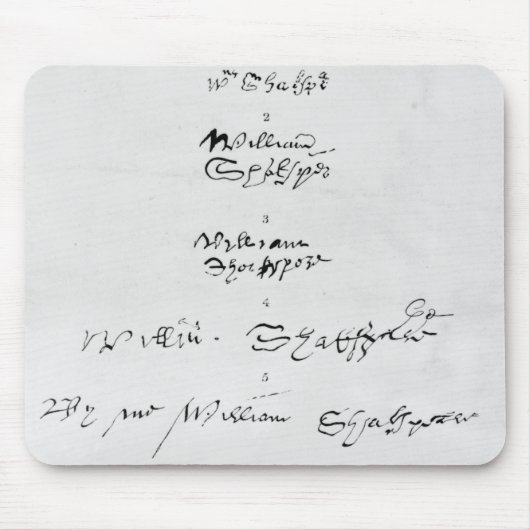 Wm Shakspẽ
2
William
Shakspēr
3
William
Shakspere
4
Willm. Shakspere
5
By me William Shakspeare